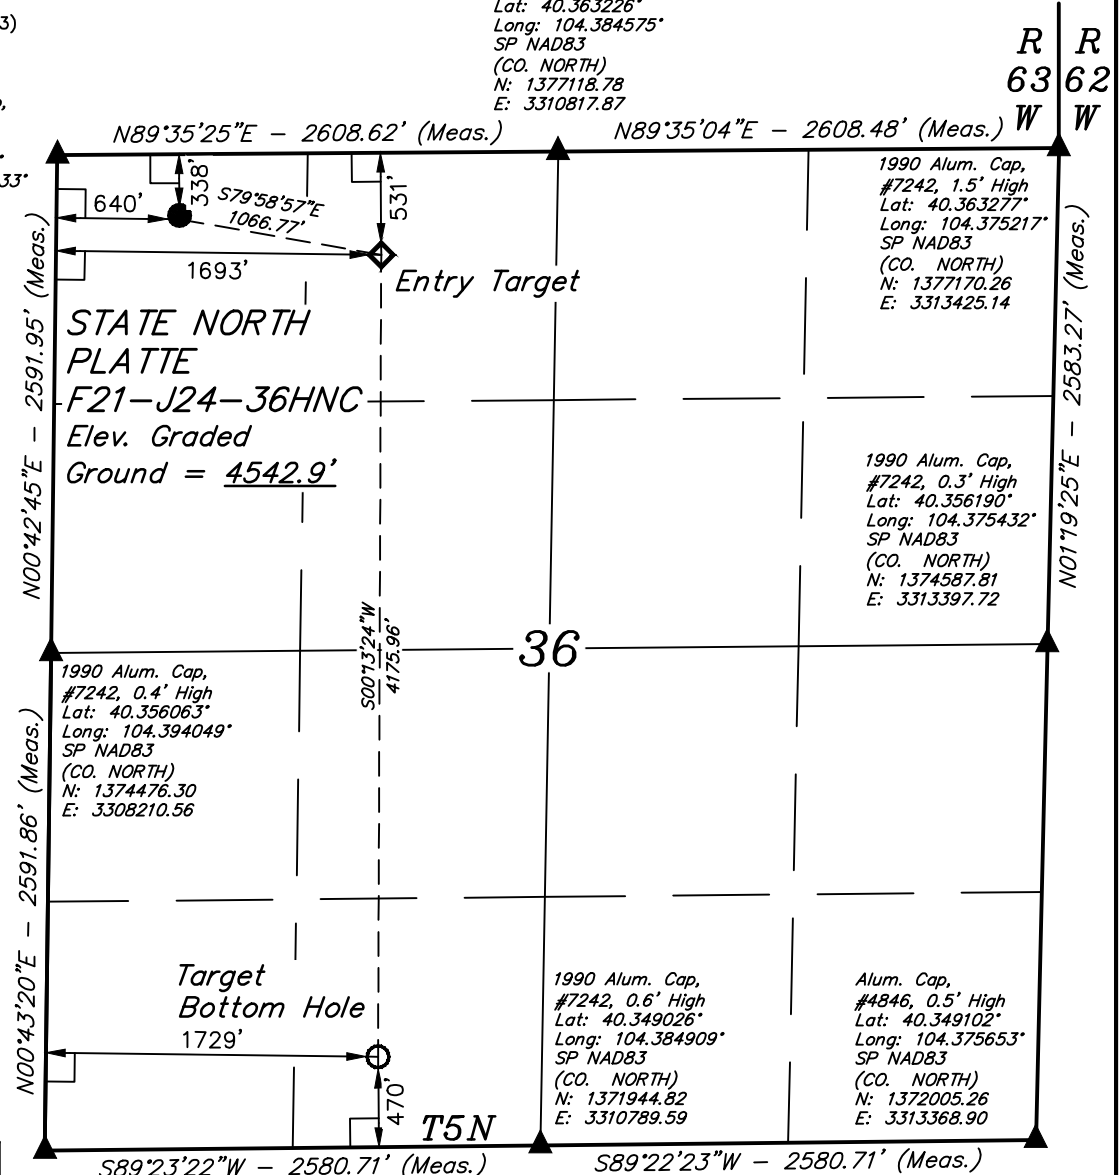 3)
33°
Lat: 40.363226°
Long: 104.384575°
SP NAD83
(CO. NORTH)
N: 1377118.78
E: 3310817.87
R R
63 62
W W
N89°35'25"E - 2608.62' (Meas.)
N89°35'04"E - 2608.48' (Meas.)
640'
338'
S79°58'57"E
1066.77'
531'
1693'
Entry Target
1990 Alum. Cap,
#7242, 1.5' High
Lat: 40.363277°
Long: 104.375217°
SP NAD83
(CO. NORTH)
N: 1377170.26
E: 3313425.14
STATE NORTH
PLATTE
F21-J24-36HNC
Elev. Graded
Ground = 4542.9'
N00°42'45"E - 2591.95' (Meas.)
N01°19'25"E - 2583.27' (Meas.)
1990 Alum. Cap,
#7242, 0.3' High
Lat: 40.356190°
Long: 104.375432°
SP NAD83
(CO. NORTH)
N: 1374587.81
E: 3313397.72
S00°13'24"W
4175.96'
36
1990 Alum. Cap,
#7242, 0.4' High
Lat: 40.356063°
Long: 104.394049°
SP NAD83
(CO. NORTH)
N: 1374476.30
E: 3308210.56
N00°43'20"E - 2591.86' (Meas.)
Target
Bottom Hole
1729'
470'
T5N
1990 Alum. Cap,
#7242, 0.6' High
Lat: 40.349026°
Long: 104.384909°
SP NAD83
(CO. NORTH)
N: 1371944.82
E: 3310789.59
Alum. Cap,
#4846, 0.5' High
Lat: 40.349102°
Long: 104.375653°
SP NAD83
(CO. NORTH)
N: 1372005.26
E: 3313368.90
S89°23'22"W - 2580.71' (Meas.)
S89°22'23"W - 2580.71' (Meas.)